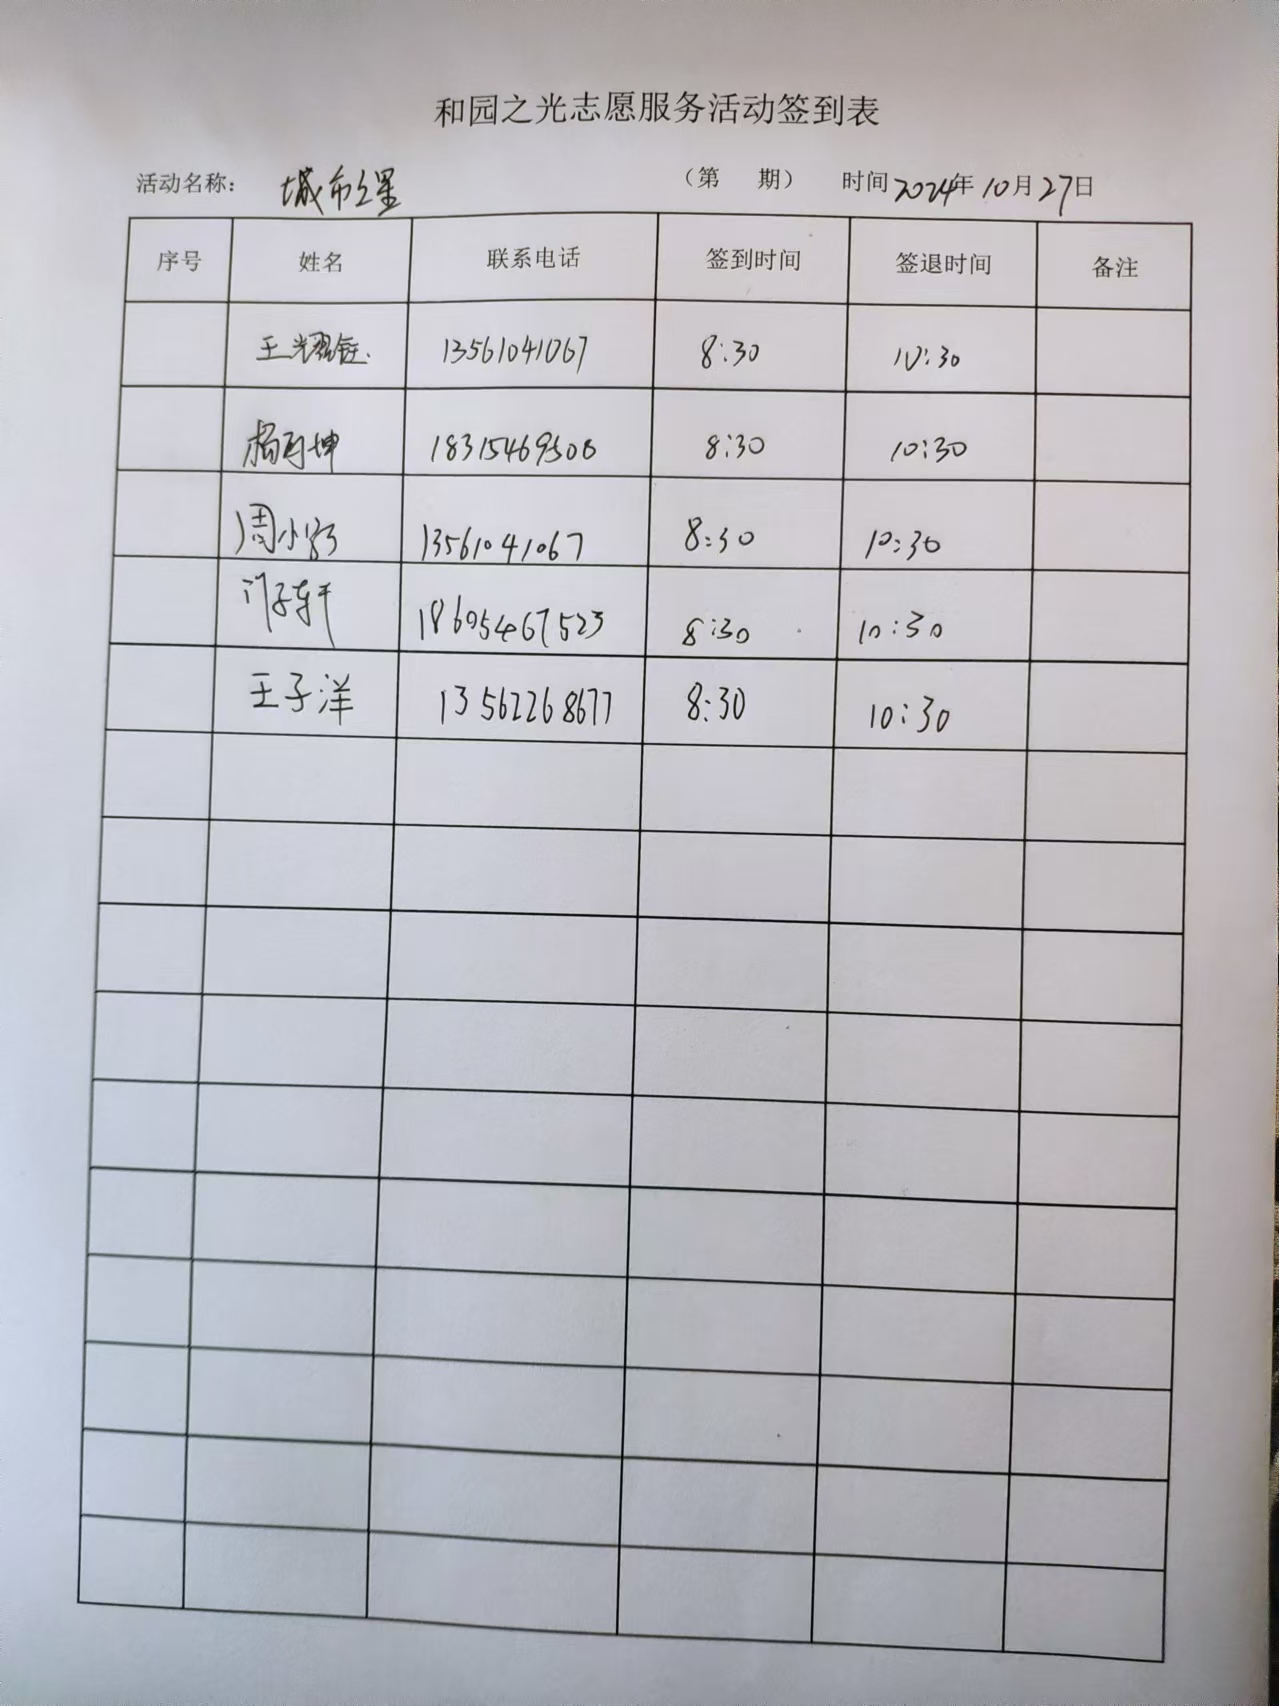 和园之光志愿服务活动签到表
活动名称： 城市之星 （第 期） 时间 2024年 10月 27日
序号 姓名 联系电话 签到时间 签退时间 备注
王耀 13561041067 8:30 10:30
杨 坤 18315469506 8:30 10:30
周小 13561041067 8:30 10:30
门子轩 18605467523 8:30 10:30
王子洋 13562268677 8:30 10:30